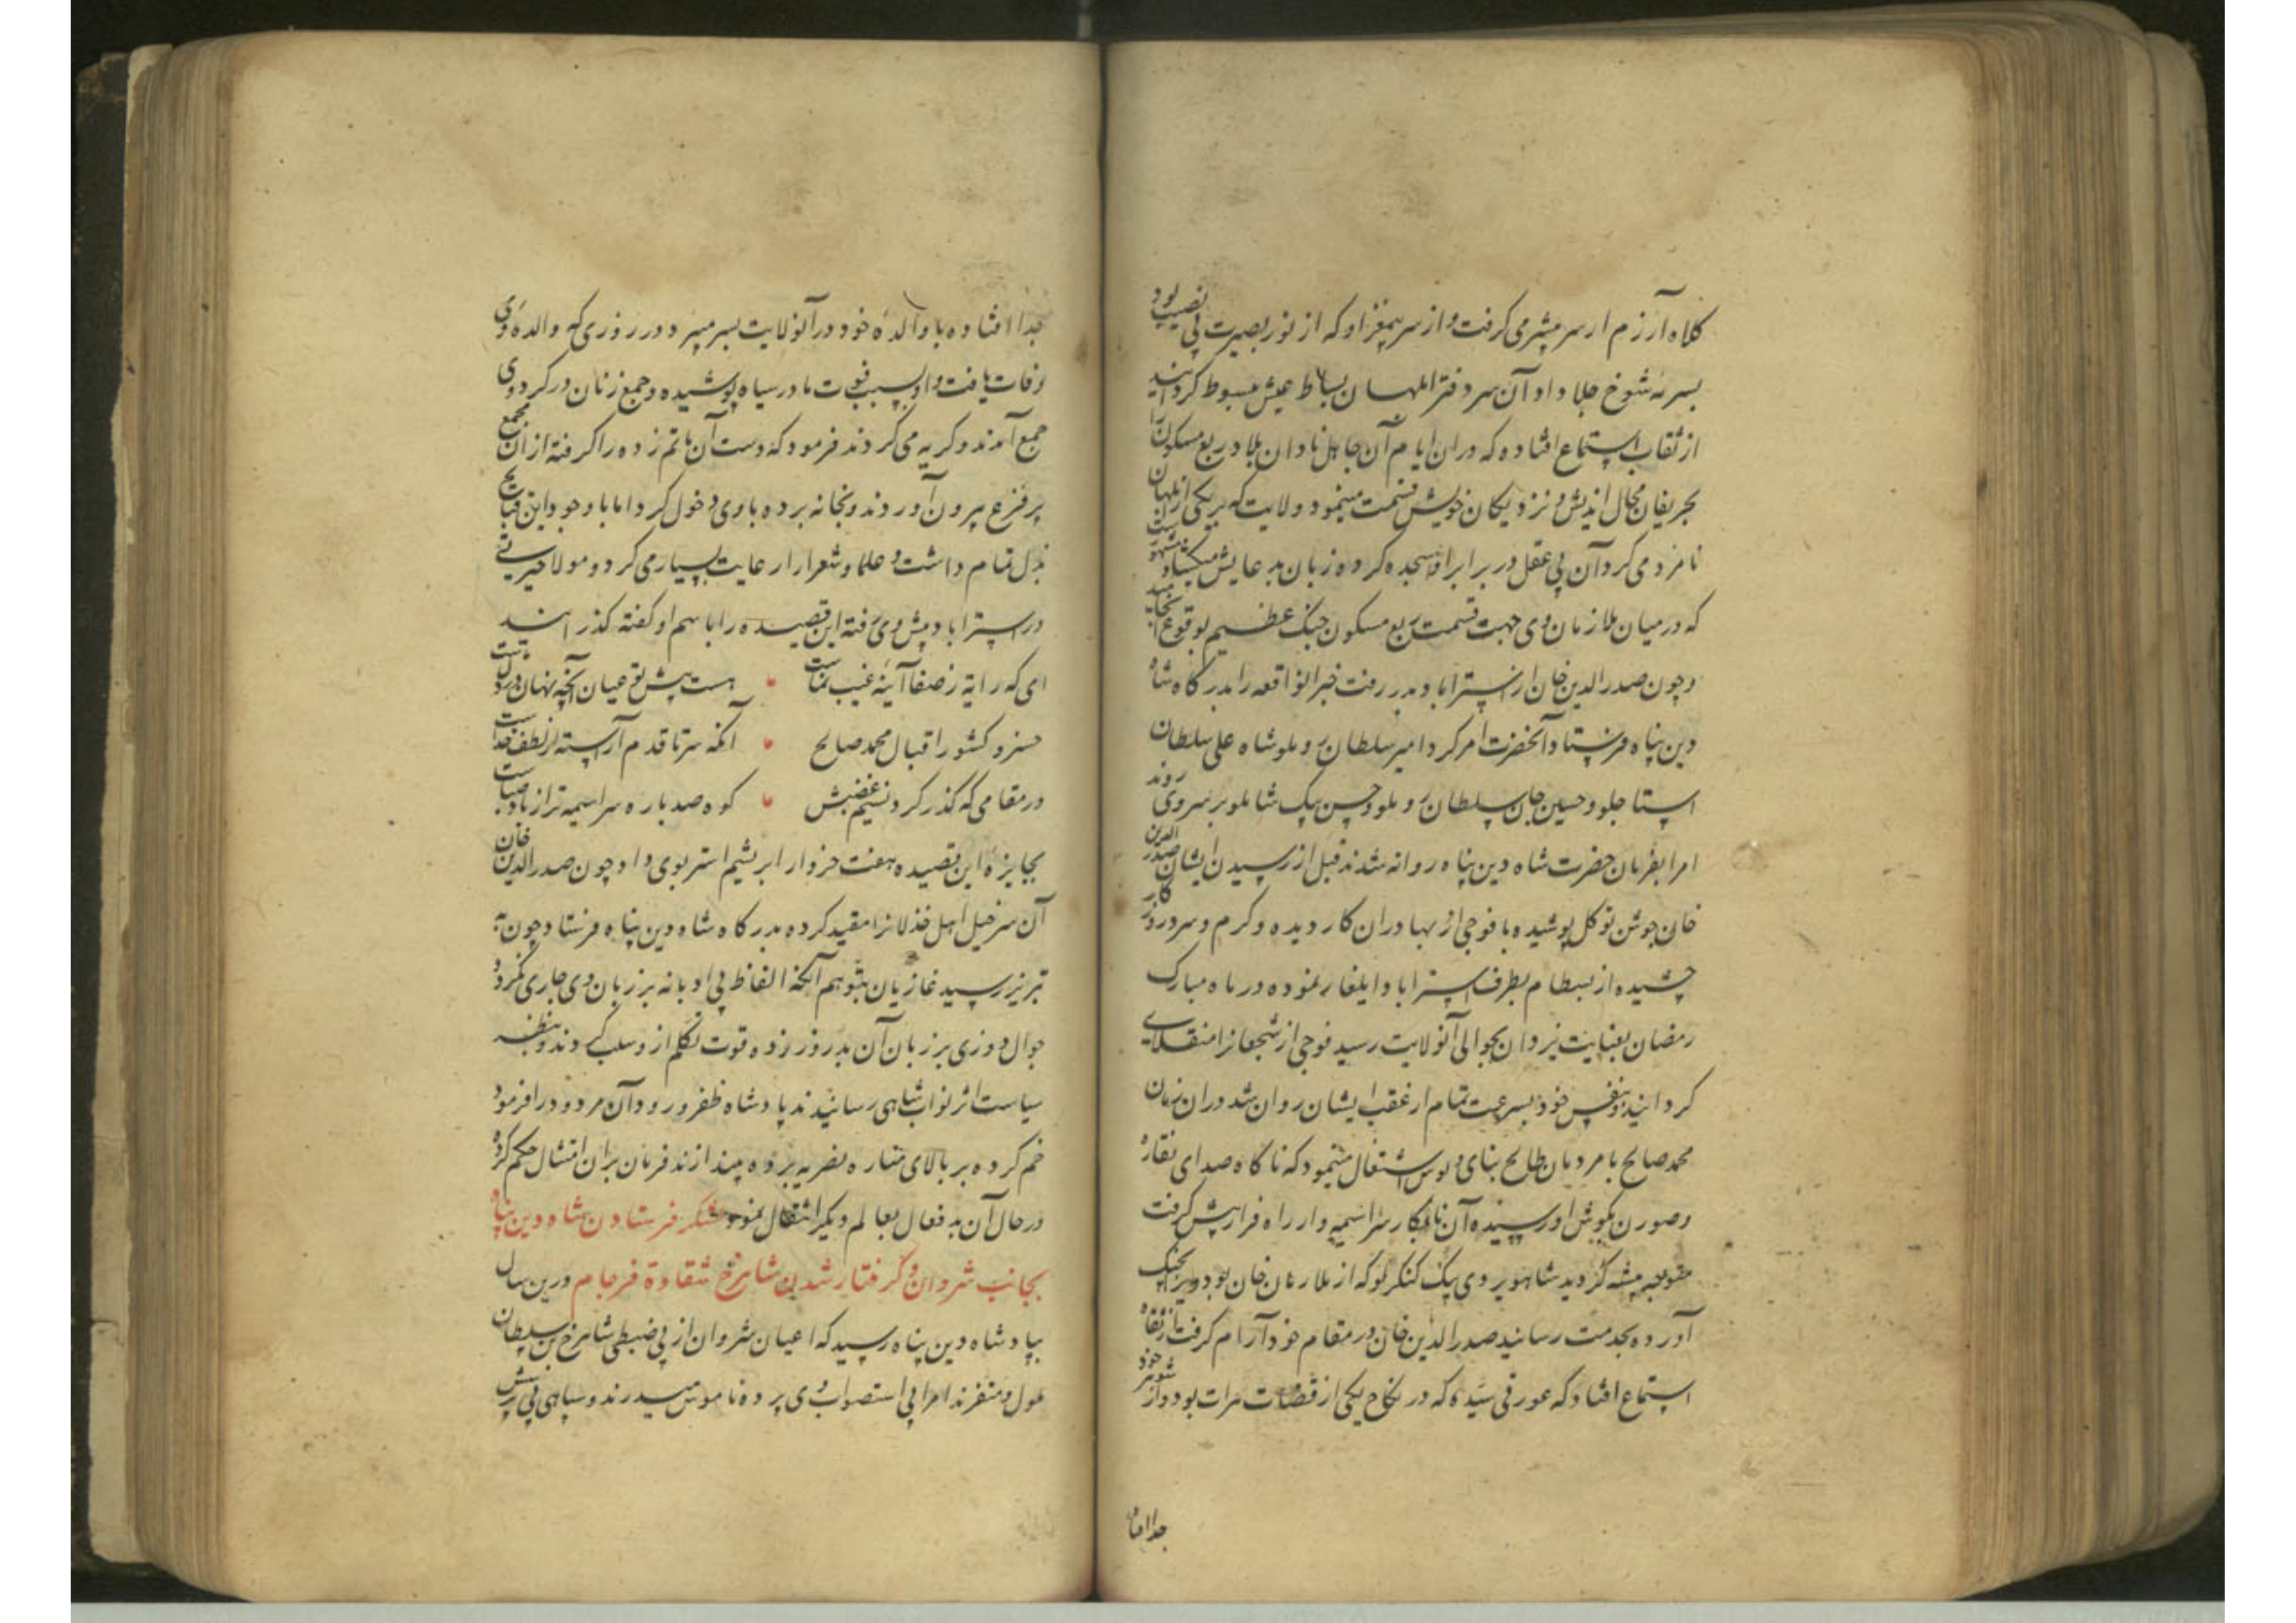 کلاه آزرم از سر مبشر می کرفت و از سر بیمغز او که از نور بصیرت بی نصیب بود
بسر نه شوخ جلا داد آن سر دفتر ابلهان بساط عیش مبسوط کردانید
از ثقاب استماع افتاده که دران ایام آن جاهل نادان بلاد ربع مسکون را
بحریفان محال اندیش و نزدیکان خویش قسمت مینمود ولایت که بر یکی از ابلهان
نامزد می کرد آن بی عقل در برابر او سجده کرده زبان بدعایش میکشاد
که در میان ملازمان وی جهت قسمت ربع مسکون جنک عظیم بوقوع انجامید
و چون صدرالدین خان از استراباد بدر رفت خبر انواقعه را بدرکاه شاه
دین پناه فرستاد آنحضرت امر کرد امیر سلطان روملو شاه علی سلطان
استاجلو و حسین جان سلطان روملو و حسن بیک شاملو بر سر وی روند
امرا بفرمان حضرت شاه دین پناه روانه شدند قبل از رسیدن ایشان صدرالدین
خان جوشن توکل پوشیده با فوجی از بهادران کار دیده و کرم و سرد روزکار
چشیده از بسطام بطرف استراباد ایلغار نموده در ماه مبارک
رمضان بعنایت یزدان بحوالی آنولایت رسید فوجی از شجعانرا منقلای
کردانید و بنفس خود بسرعت تمام از عقب ایشان روان شد دران زمان
محمد صالح با مردمان طالح بنای و نوش اشتغال مینمود که ناکاه صدای نقاره
و صورن بکوش او رسیده آن نابکار سراسیمه وار راه فرار پیش کرفت
متوجه بیشه کردید شاهویردی بیک کنکرلو که از ملازمان خان بود ویرا بچنک
آورده بخدمت رسانید صدرالدین خان در مقام خود آرام کرفت از ثقاه
استماع افتاد که عورتی سیده که در نکاح یکی از قضات هرات بود و از شوهر خود
جدا افتاده
جدا افتاده با والده خود در آنولایت بسر میبرد در روزی که والده وی
وفات یافت و او بسبب فوت مادر سیاه پوشیده و جمع زنان در کرد وی
جمع آمدند و کریه می کردند فرمود که دست آن ماتم زده را کرفته از آن مجمع
پر فزع بیرون آوردند و بخانه برده با وی دخول کرد اما با وجود این قبایح
بذل تمام داشت و علما و شعرا را رعایت بسیار می کرد و مولا حیرتی
در استراباد پیش وی رفته این قصیده را باسم او کفته کذرانید
ای که رایت ز صفا آینه غیب نماست هست پیش تو عیان آنچه نهان در دل ماست
خسرو کشور اقبال محمد صالح آنکه سر تا قدم آراسته از لطف خداست
در مقامی که کذر کرد نسیم غضبش کوه صد باره سراسیمه تر از باد صباست
بجایزه این قصیده هفت خروار ابریشم استر بوی داد چون صدرالدین خان
آن سرخیل اهل خذلانرا مقید کرده بدرکاه شاه دین پناه فرستاد چون به
تبریز رسید غازیان بتوهم آنکه الفاظ بی ادبانه بر زبان وی جاری نکردد
جوال دوزی بر زبان آن بد روز زده قوت تکلم از و سلب کردند و بنظر
سیاست اثر نواب شاهی رسانیدند پادشاه ظفر ورود آن مردود را فرمود
خم کرده بر بالای مناره نصریه برده بیندازند فرمان بران امتثال حکم کرده
در حال آن بد فعال بعالم دیکر انتقال نمود لشکر فرستادن شاه دین پناه
بجانب شروان و کرفتار شدن شاهرخ شقاوة فرجام درین سال
بپادشاه دین پناه رسید که اعیان شروان از بی ضبطی شاهرخ بن سلطان
ملول و متنفرند امرا بی استصواب وی پرده ناموس میدرند و سپاهی بی پرسش